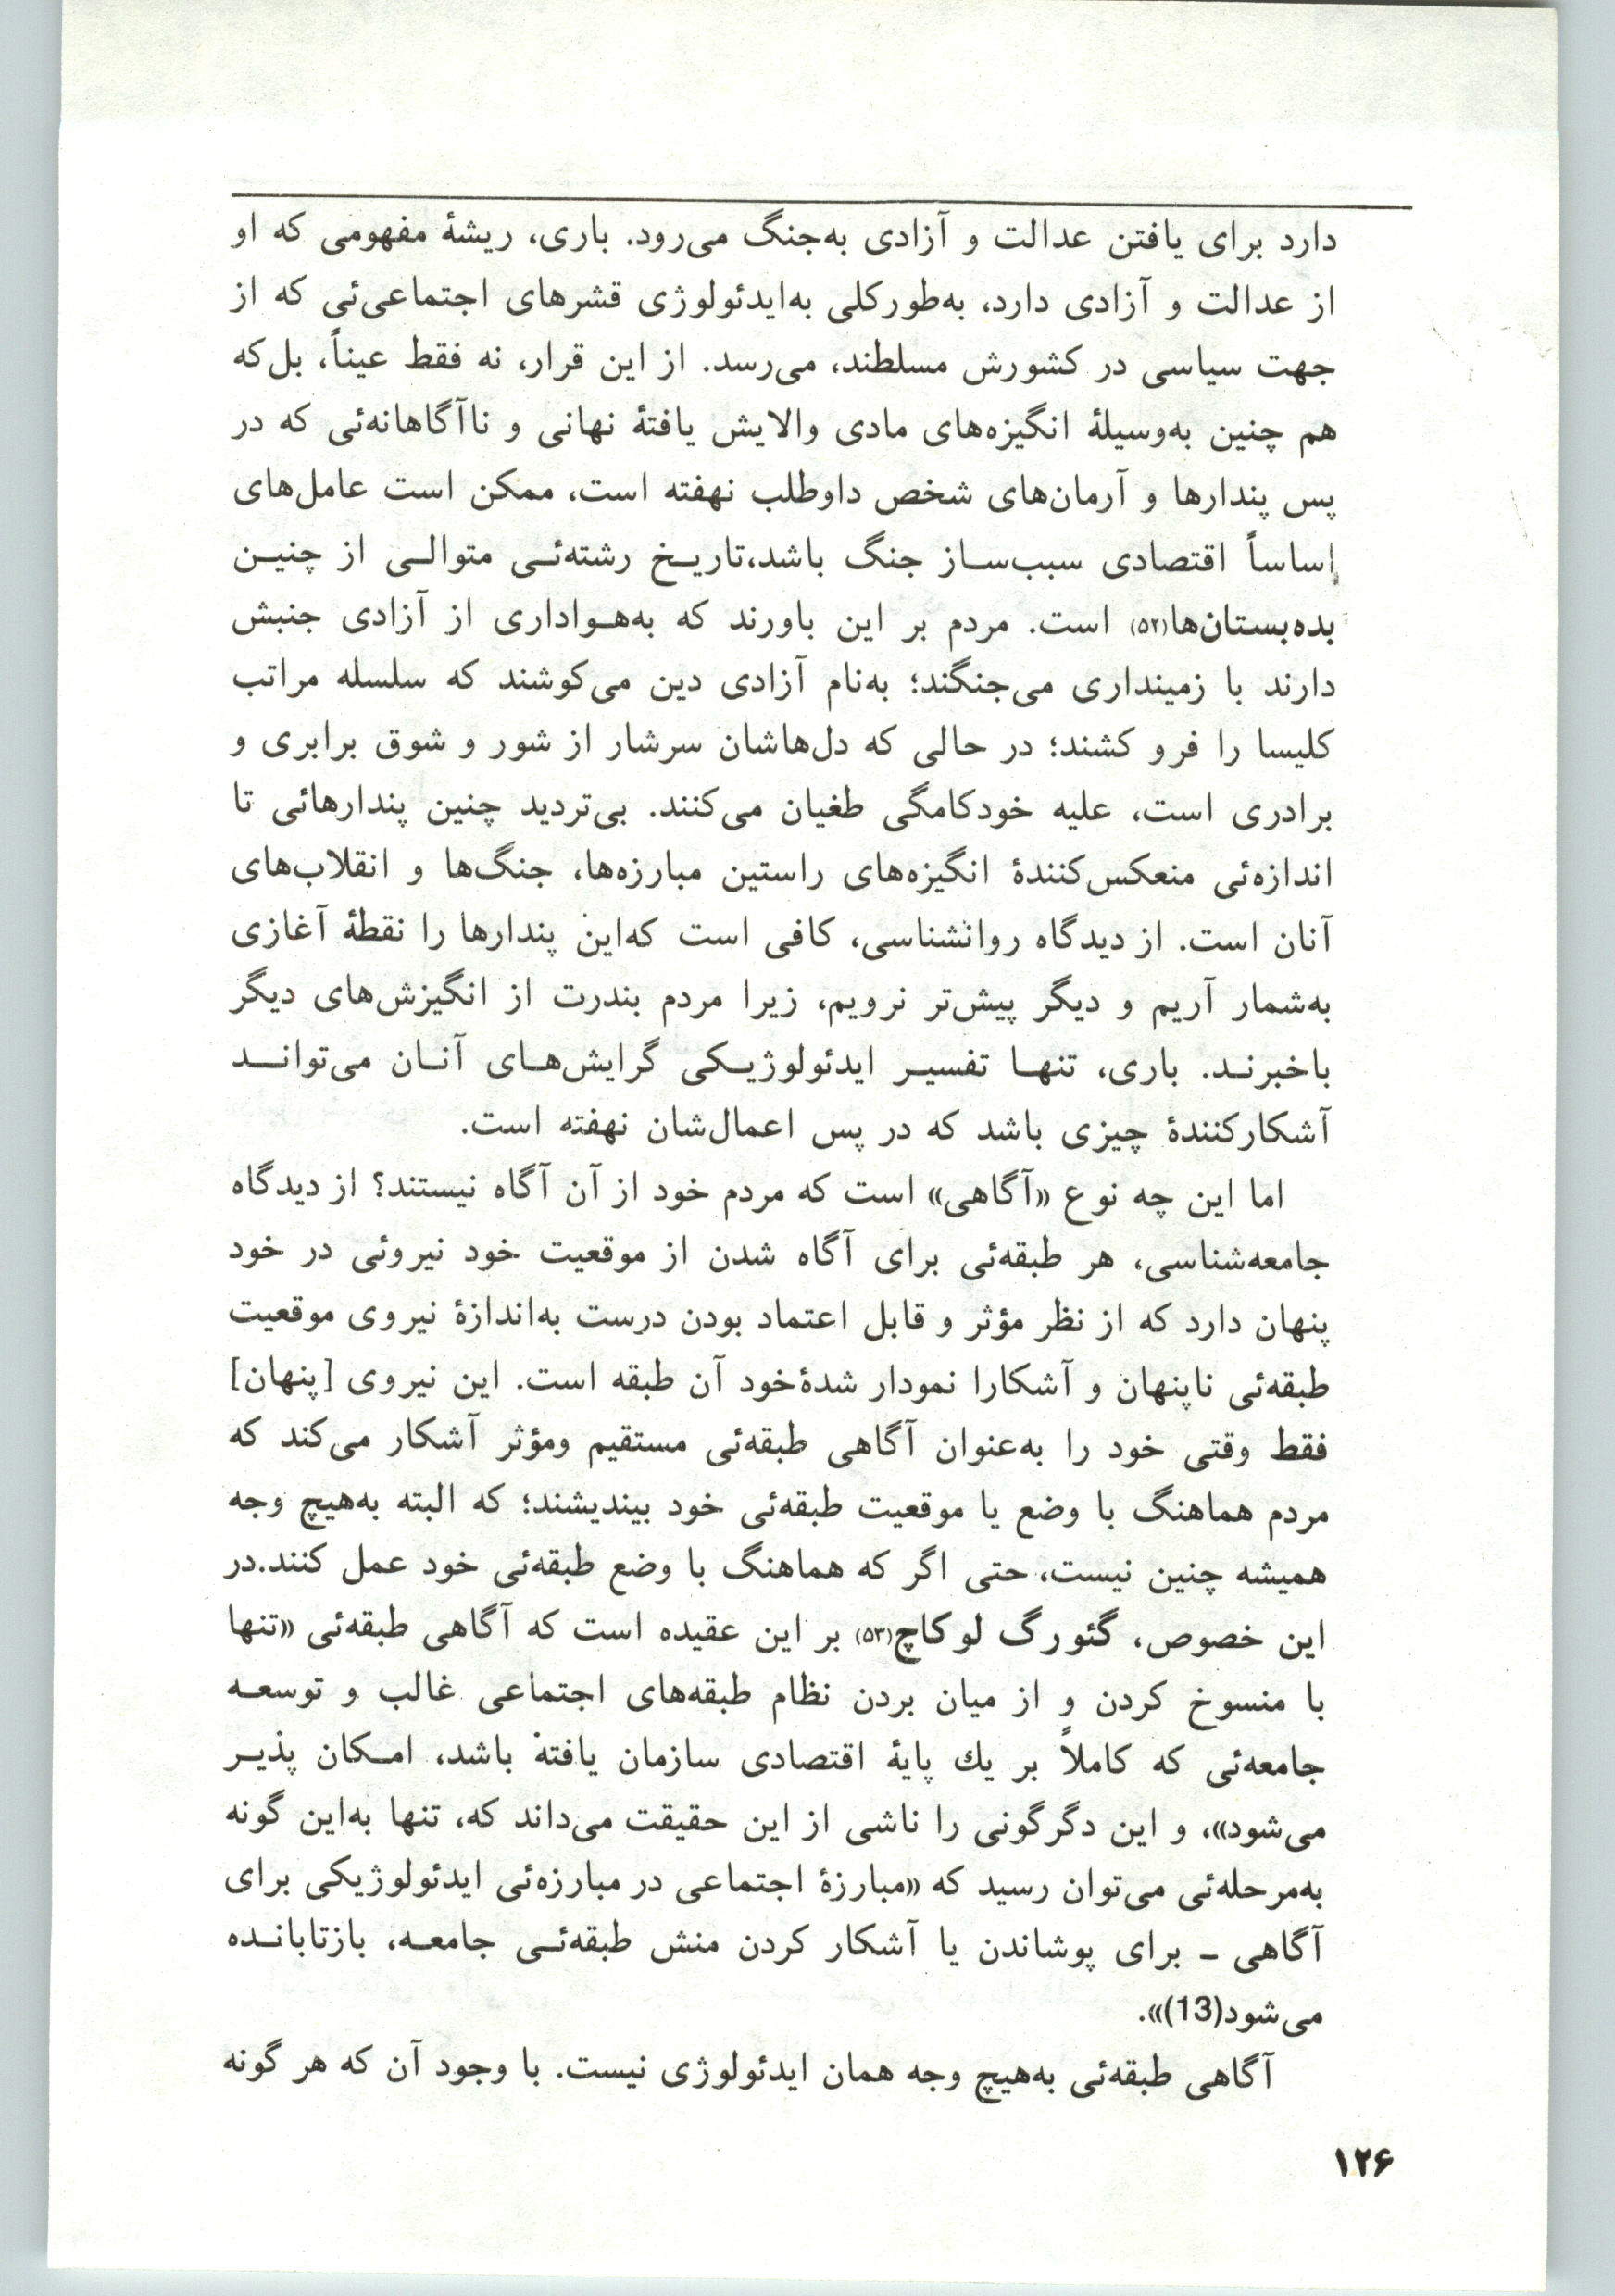 دارد برای یافتن عدالت و آزادی به‌جنگ می‌رود. باری، ریشهٔ مفهومی که او
از عدالت و آزادی دارد، به‌طورکلی به‌ایدئولوژی قشرهای اجتماعی‌ئی که از
جهت سیاسی در کشورش مسلطند، می‌رسد. از این قرار، نه فقط عیناً، بل‌که
هم چنین به‌وسیلهٔ انگیزه‌های مادی والایش یافتهٔ نهانی و ناآگاهانه‌ئی که در
پس پندارها و آرمان‌های شخص داوطلب نهفته است، ممکن است عامل‌های
اساساً اقتصادی سبب‌ساز جنگ باشد،تاریخ رشته‌ئی متوالی از چنین
بده‌بستان‌ها(۵۲) است. مردم بر این باورند که به‌هواداری از آزادی جنبش
دارند با زمینداری می‌جنگند؛ به‌نام آزادی دین می‌کوشند که سلسله مراتب
کلیسا را فرو کشند؛ در حالی که دل‌هاشان سرشار از شور و شوق برابری و
برادری است، علیه خودکامگی طغیان می‌کنند. بی‌تردید چنین پندارهائی تا
اندازه‌ئی منعکس‌کنندهٔ انگیزه‌های راستین مبارزه‌ها، جنگ‌ها و انقلاب‌های
آنان است. از دیدگاه روانشناسی، کافی است که‌این پندارها را نقطهٔ آغازی
به‌شمار آریم و دیگر پیش‌تر نرویم، زیرا مردم بندرت از انگیزش‌های دیگر
باخبرند. باری، تنها تفسیر ایدئولوژیکی گرایش‌های آنان می‌تواند
آشکارکنندهٔ چیزی باشد که در پس اعمال‌شان نهفته است.
اما این چه نوع «آگاهی» است که مردم خود از آن آگاه نیستند؟ از دیدگاه
جامعه‌شناسی، هر طبقه‌ئی برای آگاه شدن از موقعیت خود نیروئی در خود
پنهان دارد که از نظر مؤثر و قابل اعتماد بودن درست به‌اندازهٔ نیروی موقعیت
طبقه‌ئی ناپنهان و آشکارا نمودار شدهٔ‌خود آن طبقه است. این نیروی [پنهان]
فقط وقتی خود را به‌عنوان آگاهی طبقه‌ئی مستقیم ومؤثر آشکار می‌کند که
مردم هماهنگ با وضع یا موقعیت طبقه‌ئی خود بیندیشند؛ که البته به‌هیچ وجه
همیشه چنین نیست، حتی اگر که هماهنگ با وضع طبقه‌ئی خود عمل کنند.در
این خصوص، گئورگ لوکاچ(۵۳) بر این عقیده است که آگاهی طبقه‌ئی «تنها
با منسوخ کردن و از میان بردن نظام طبقه‌های اجتماعی غالب و توسعه
جامعه‌ئی که کاملاً بر یك پایهٔ اقتصادی سازمان یافته باشد، امکان پذیر
می‌شود»، و این دگرگونی را ناشی از این حقیقت می‌داند که، تنها به‌این گونه
به‌مرحله‌ئی می‌توان رسید که «مبارزهٔ اجتماعی در مبارزه‌ئی ایدئولوژیکی برای
آگاهی ــ برای پوشاندن یا آشکار کردن منش طبقه‌ئی جامعه، بازتاباننده
می‌شود(13)».
آگاهی طبقه‌ئی به‌هیچ وجه همان ایدئولوژی نیست. با وجود آن که هر گونه
۱۲۶